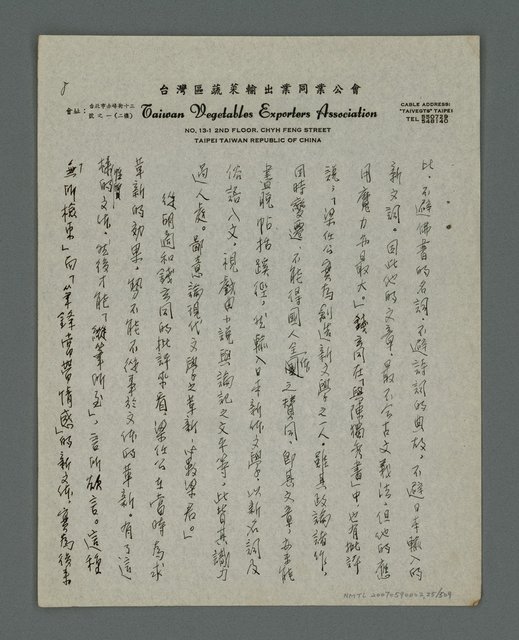 5
台灣區蔬菜輸出業同業公會
會址：台北市赤峰街十三號之一（二樓）
Taiwan Vegetables Exporters Association
NO, 13-1 2ND FLOOR. CHYH FENG STREET
TAIPEI TAIWAN REPUBLIC OF CHINA
CABLE ADDRESS:
"TAIVEGTS" TAIPEI
TEL 550729
548740
比、不避佛書的名詞，不避詩詞的典故，不避日本輸入的
新文詞。因此他的文章，最不合古文義法，但他的應
用魔力亦最大。」錢玄同在「與陳獨秀書」中，也有批評
說：「梁任公實為創造新文學之一人。雖其政論諸作，
因時變遷，不能得國人全體之贊同，即其文章亦未能
盡脫帖括蹊徑，然輸入日本新體文學，以新名詞及
俗語入文，視戲曲小說與論記之文平等，此皆其識力
過人處。鄙意論現代文學之革新，必數梁君。」
從胡適和錢玄同的批評來看，梁任公在當時為求
革新的效果，勢不能不從事於文體的革新。有了這
樣的文體，然後才能「縱筆所至」，言所欲言。這種
「無所檢束」而「筆鋒常帶情感」的新文體，實為
NMTL 20070590002,25/309